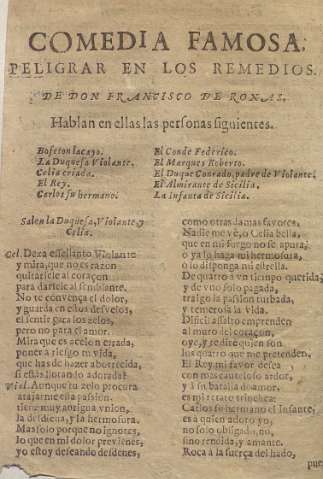 COMEDIA FAMOSA,
PELIGRAR EN LOS REMEDIOS.
DE DON FRANCISCO DE ROXAS.
Hablan en ellas las personas siguientes.
Bofeton lacayo.
La Duquesa Violante.
Celia criada.
El Rey.
Carlos su hermano.
El Conde Federico.
El Marques Roberto.
El Duque Conrado, padre de Violante.
El Almirante de Sicilia.
La Infanta de Sicilia.
Salen la Duquesa, Violante, y
Celia.
Cel. Dexa esse llanto Violante
y mira, que no es razon
quitarle al coraçon
para darle al semblante.
No te convença el dolor,
y guarda en essos desvelos,
el sentir para los zelos,
pero no para el amor.
Mira que es accion errada,
poner a riesgo tu vida,
que has de hazer aborrecida,
si estàs llorando adorada?
Viol. Aunque tu zelo procura
atajarme esta passion,
tiene muy antigua vnion,
la desdicha, y la hermosura.
Mas solo porque no ignores,
lo que en mi dolor previenes,
yo estoy deseando desdenes,
como otras damas favores.
Nadie me vè, o Celia bella,
que en mi fuego no se apura,
o ya lo haga mi hermosura,
o lo disponga mi estrella.
De quatro à vn tiempo querida,
y de vno solo pagada,
traigo la passion turbada,
y temerosa la vida.
Dificil assalto emprenden
al muro del coraçon,
oye, y redirè quien son
los quatro que me pretenden.
El Rey mi favor desea
con mas cauteloso ardor,
y à su batalla de amor,
es mi recato trinchea:
Carlos su hermano el Infante,
es a quien adoro yo,
no solo obligado, no,
sino rendida, y amante.
Roca a la fuerça del hado,
pue